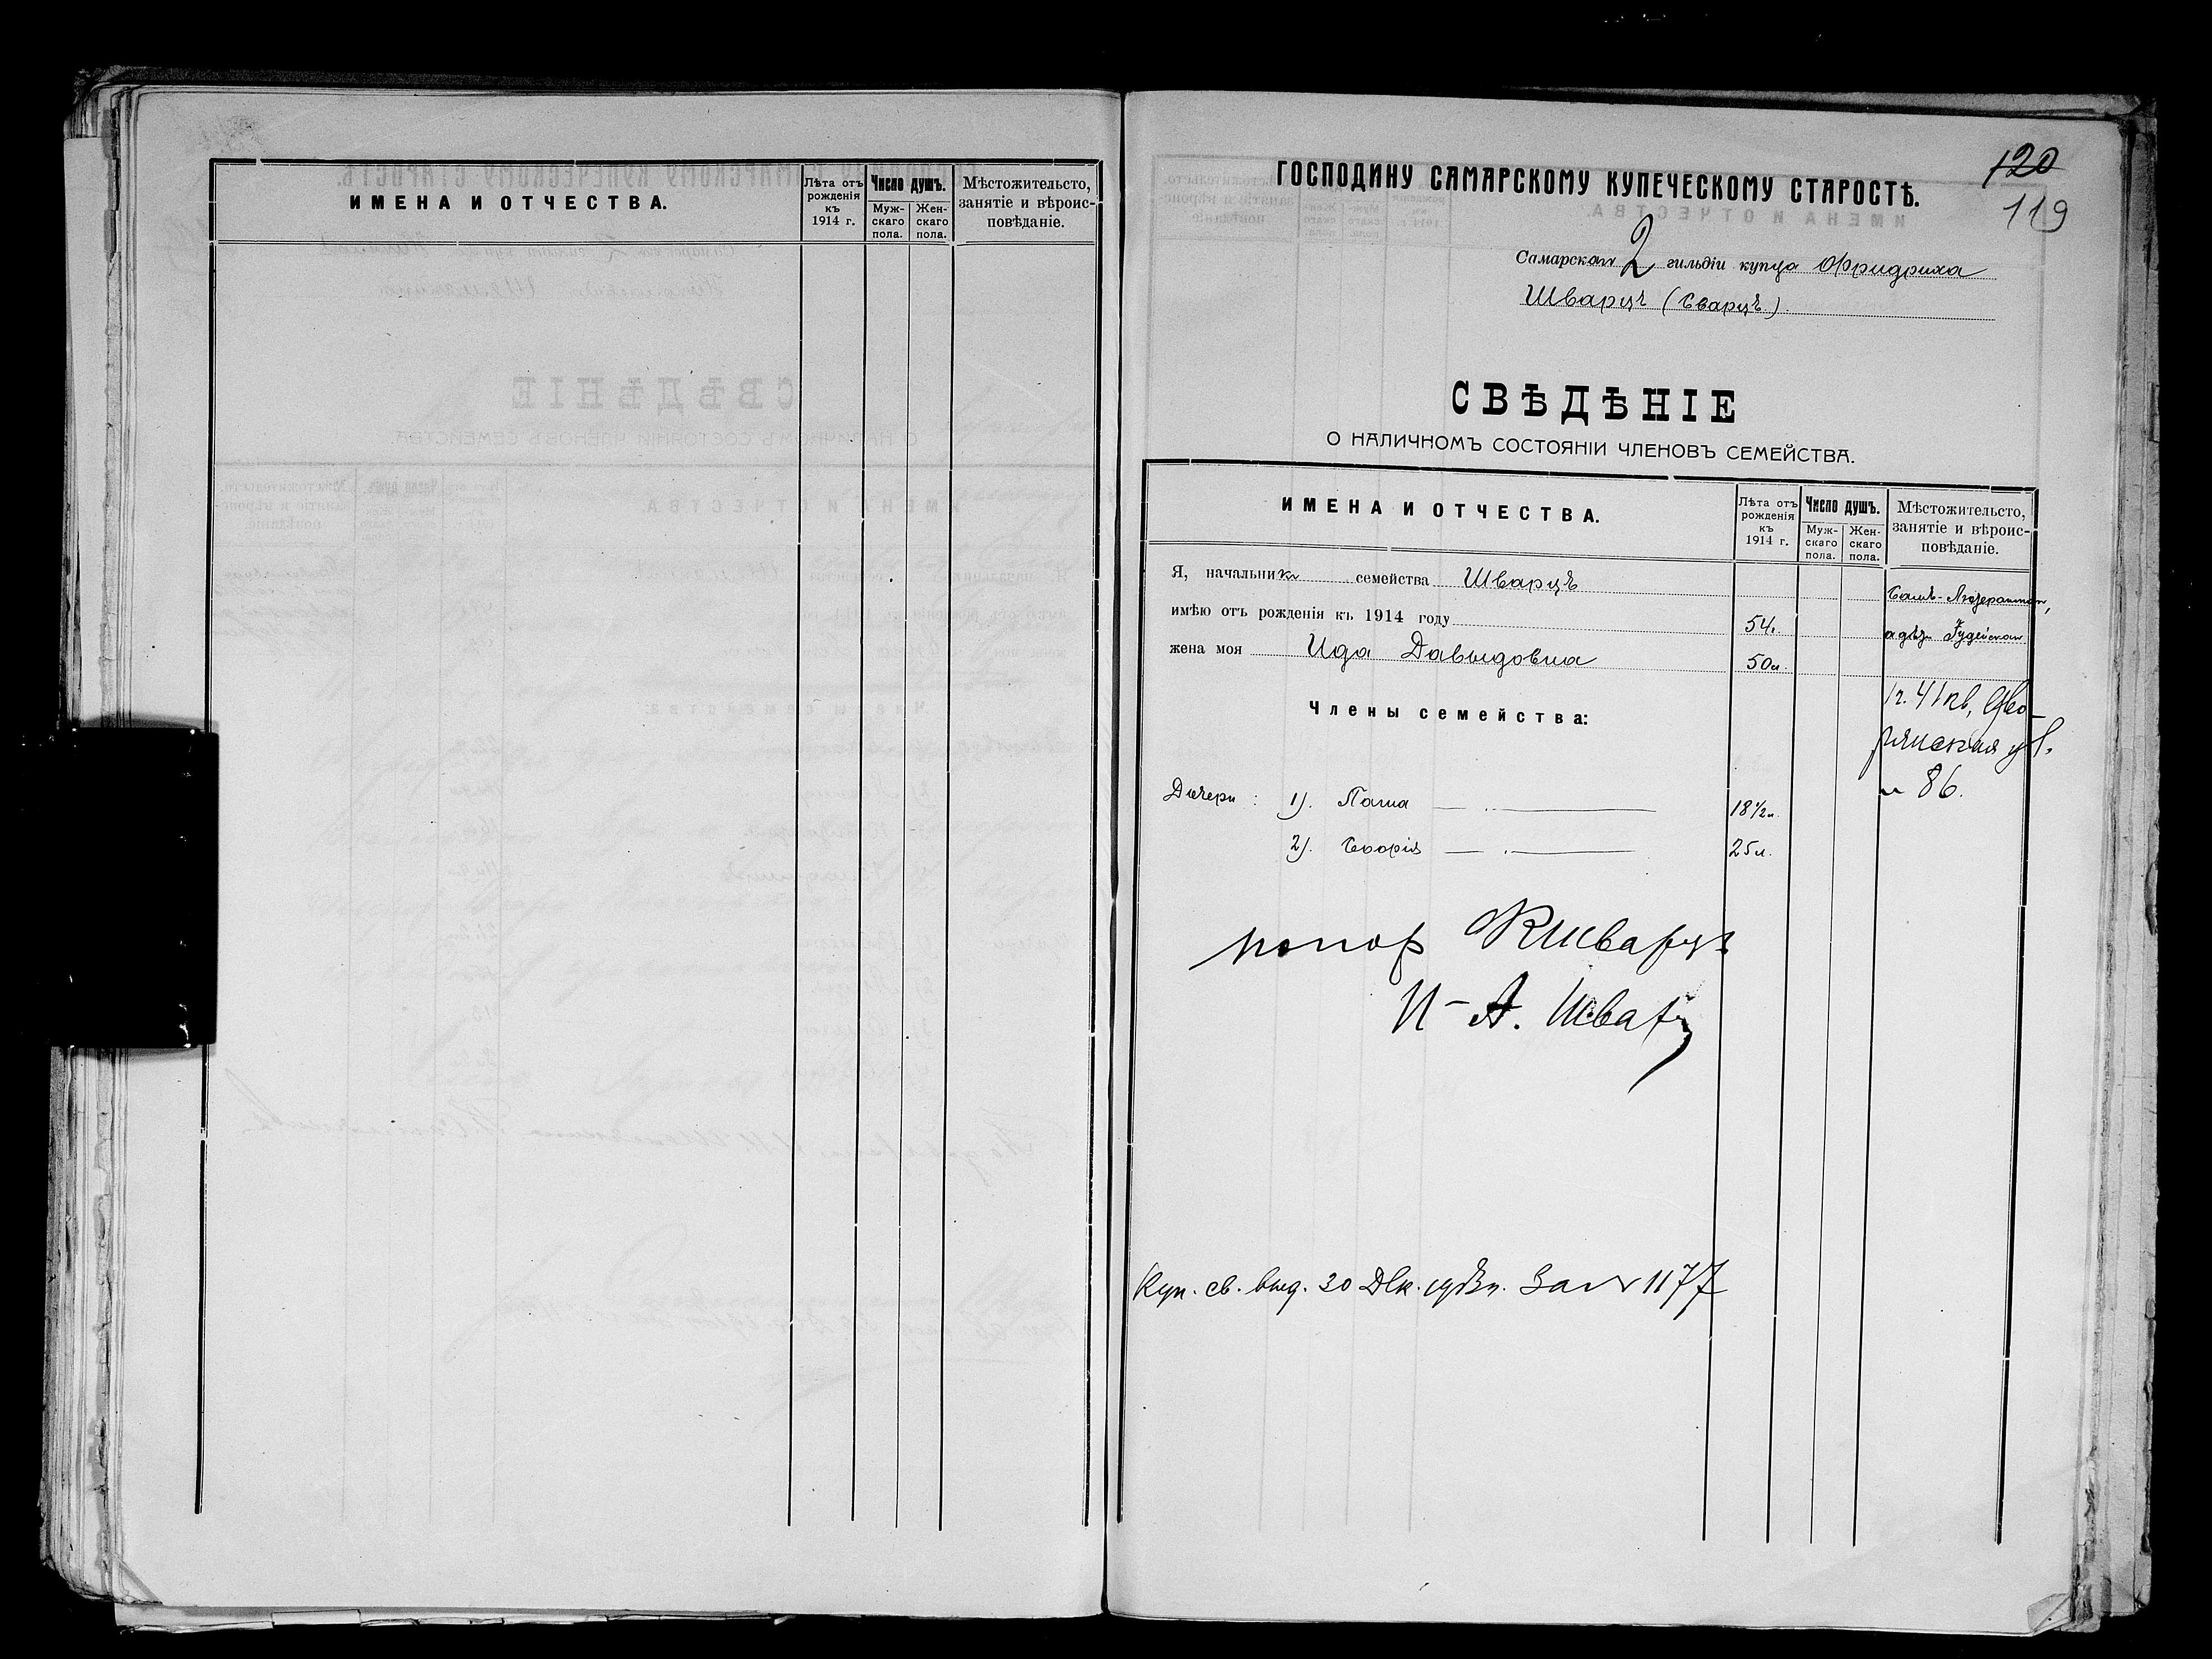 ИМЕНА И ОТЧЕСТВА.
Лѣта отъ рожденія къ 1914 г.
Число душъ.
Мужскаго пола.
Женскаго пола.
Мѣстожительсто, занятіе и вѣроисповѣданіе.
120
119
ГОСПОДИНУ САМАРСКОМУ КУПЕЧЕСКОМУ СТАРОСТѢ.
Самарскаго 2 гильдіи купца Фридриха
Шварцъ (Сварцъ).
СВѢДѢНІЕ
О НАЛИЧНОМЪ СОСТОЯНІИ ЧЛЕНОВЪ СЕМЕЙСТВА.
ИМЕНА И ОТЧЕСТВА.
Лѣта отъ рожденія къ 1914 г.
Число душъ.
Мужскаго пола.
Женскаго пола.
Мѣстожительсто, занятіе и вѣроисповѣданіе.
Я, начальникъ семейства Шварцъ
имѣю отъ рожденія къ 1914 году 54.
жена моя Ида Давыдовна 50 л.
Члены семейства:
Дворянская ул.
№ 86.
Дочери: 1). 18 1/2 л.
2). 25 л.
Шварцъ
И-А. Шварц
Куп. св. выд. 30 Дек. За № 1177